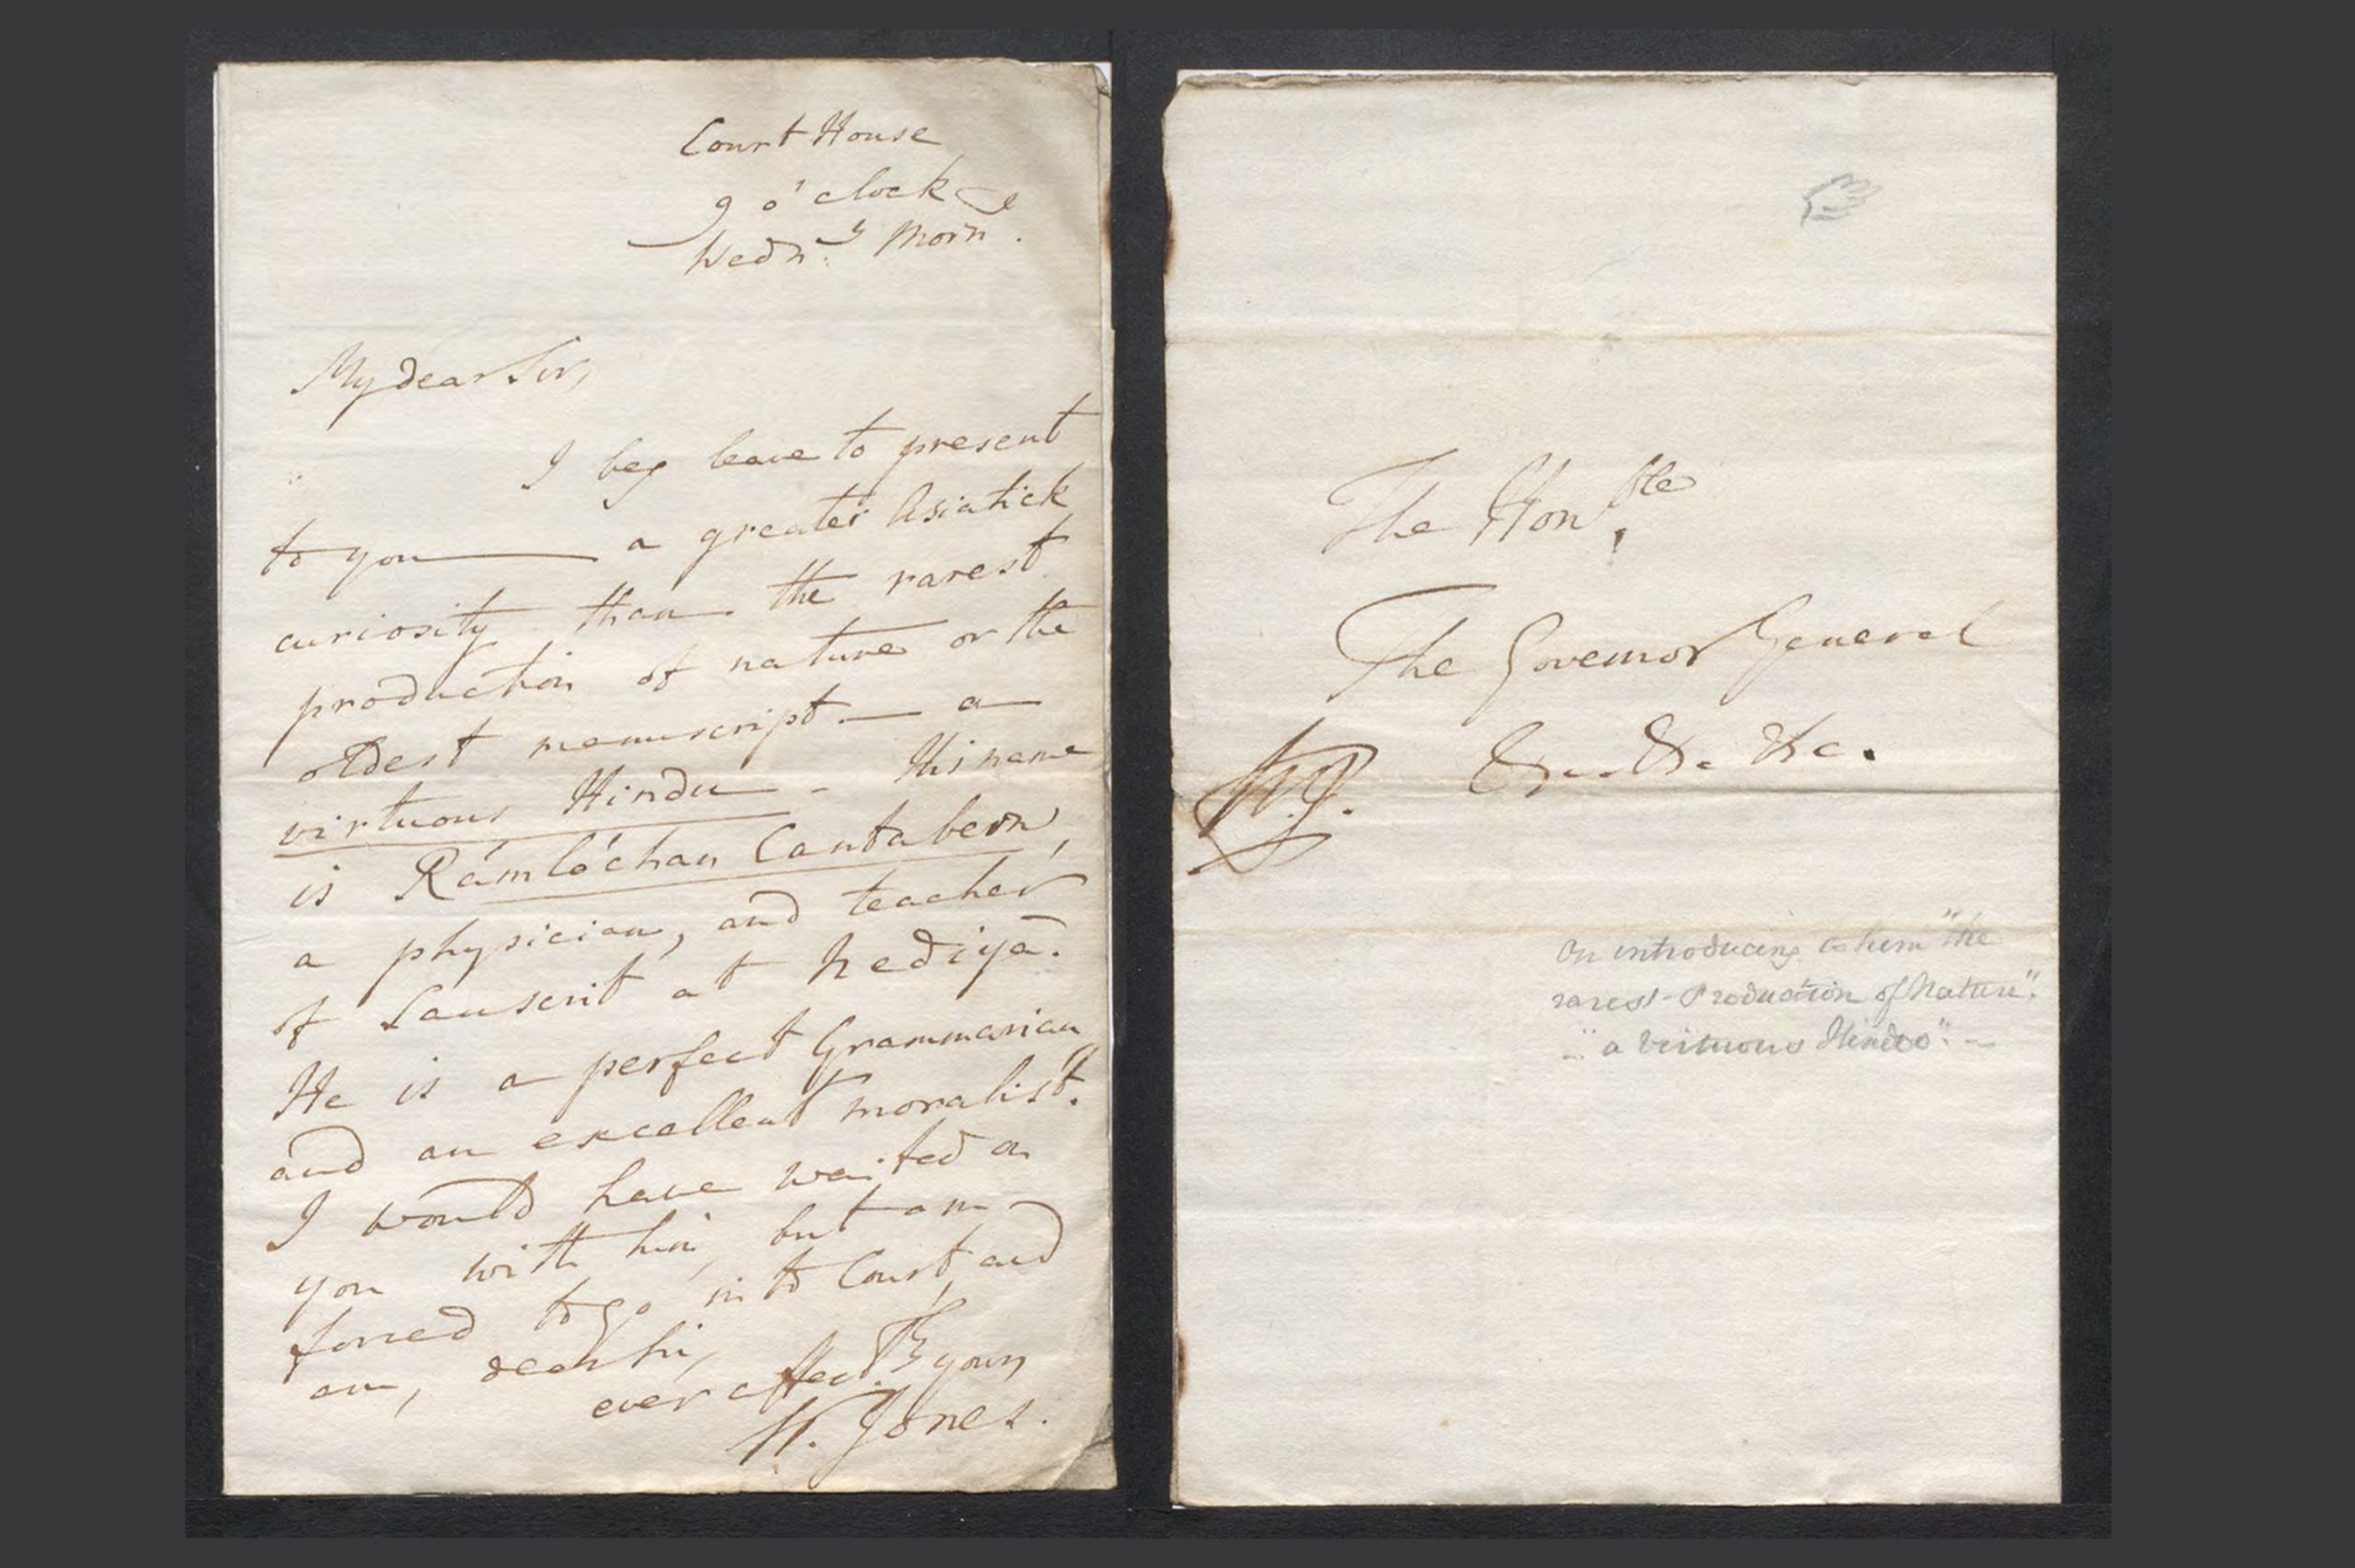 Court House
9 o'clock
Wedny. Morn.
My dear Sir,
I beg leave to present
to you — a greater Asiatick
curiosity than the rarest
production of nature or the
oldest manuscript — a
virtuous Hindu — His name
is Rámlóchan Cantabern,
a physician, and teacher
of Sanscrit at Nediyā.
He is a perfect Grammarian
and an excellent moralist.
I would have waited on
you with him, but am
forced to go into Court, and
am, dear Sir,
ever affectly. yours
W. Jones.
The Honble.
The Governor General
&c. &c. &c.
W.J.
On introducing to him "the
rarest Production of Nature".
— "a virtuous Hindoo". —